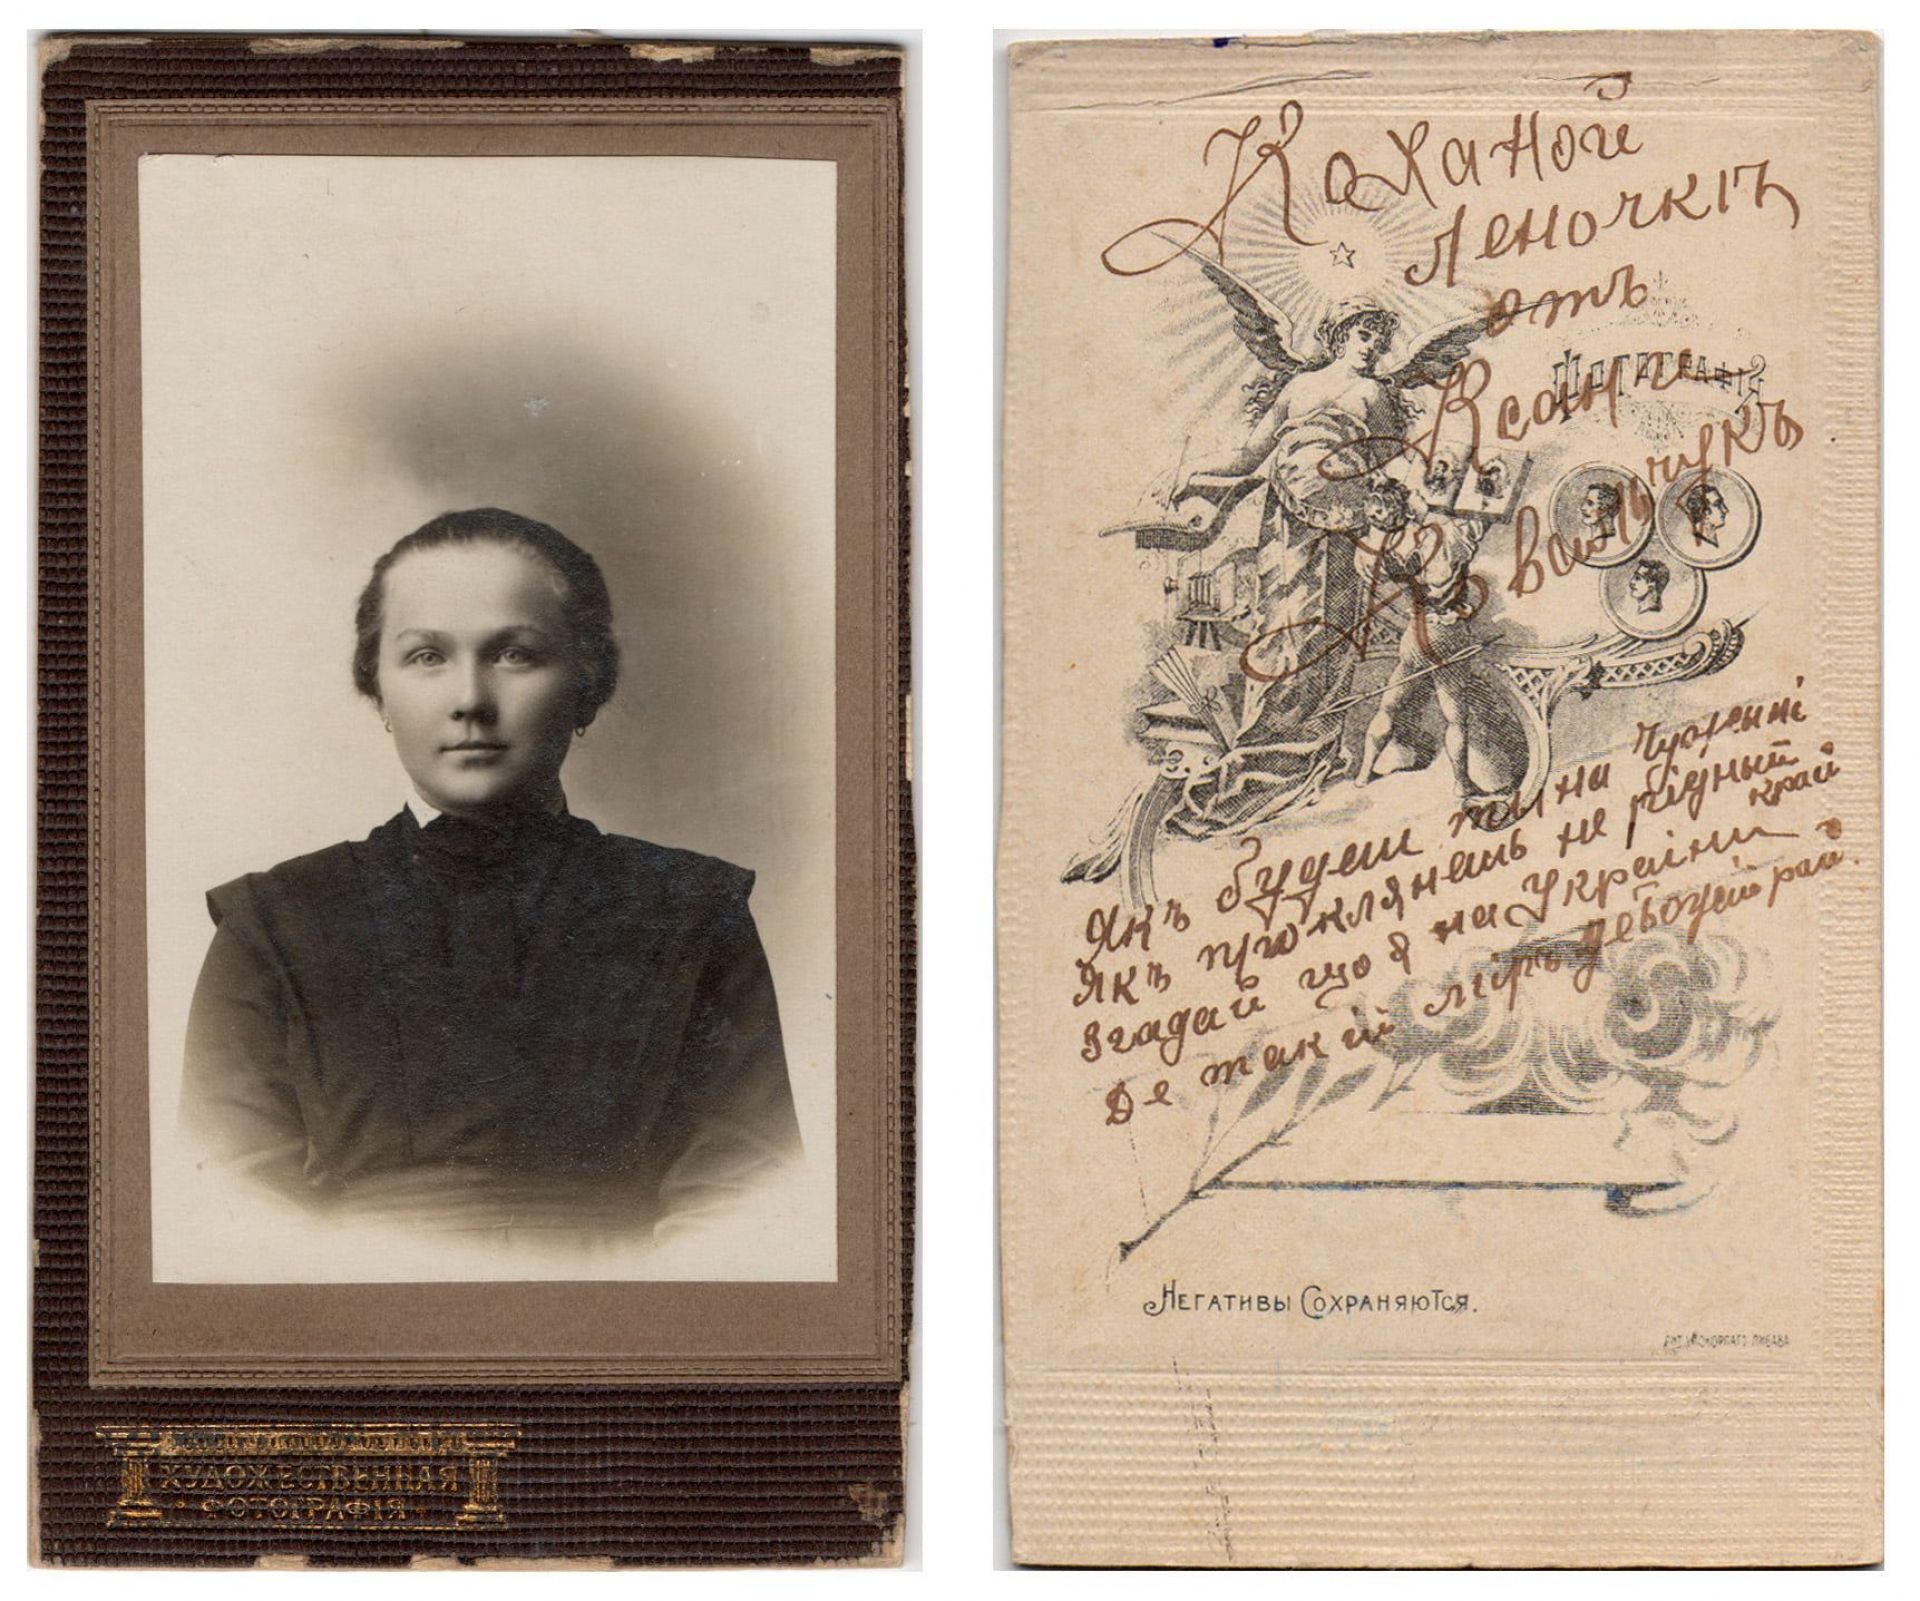 ХУДОЖЕСТВЕННАЯ
ФОТОГРАФІЯ
Коханой
Леночкіъ
отъ
Ксани
Ковальчукъ
ФОТОГРАФІЯ
Якъ будеш ты на чужыні
Якъ приклянешь не рідный
край
Згадай що я на Украіни
Де такій мір де Божій рай.
НЕГАТИВЫ СОХРАНЯЮТСЯ.